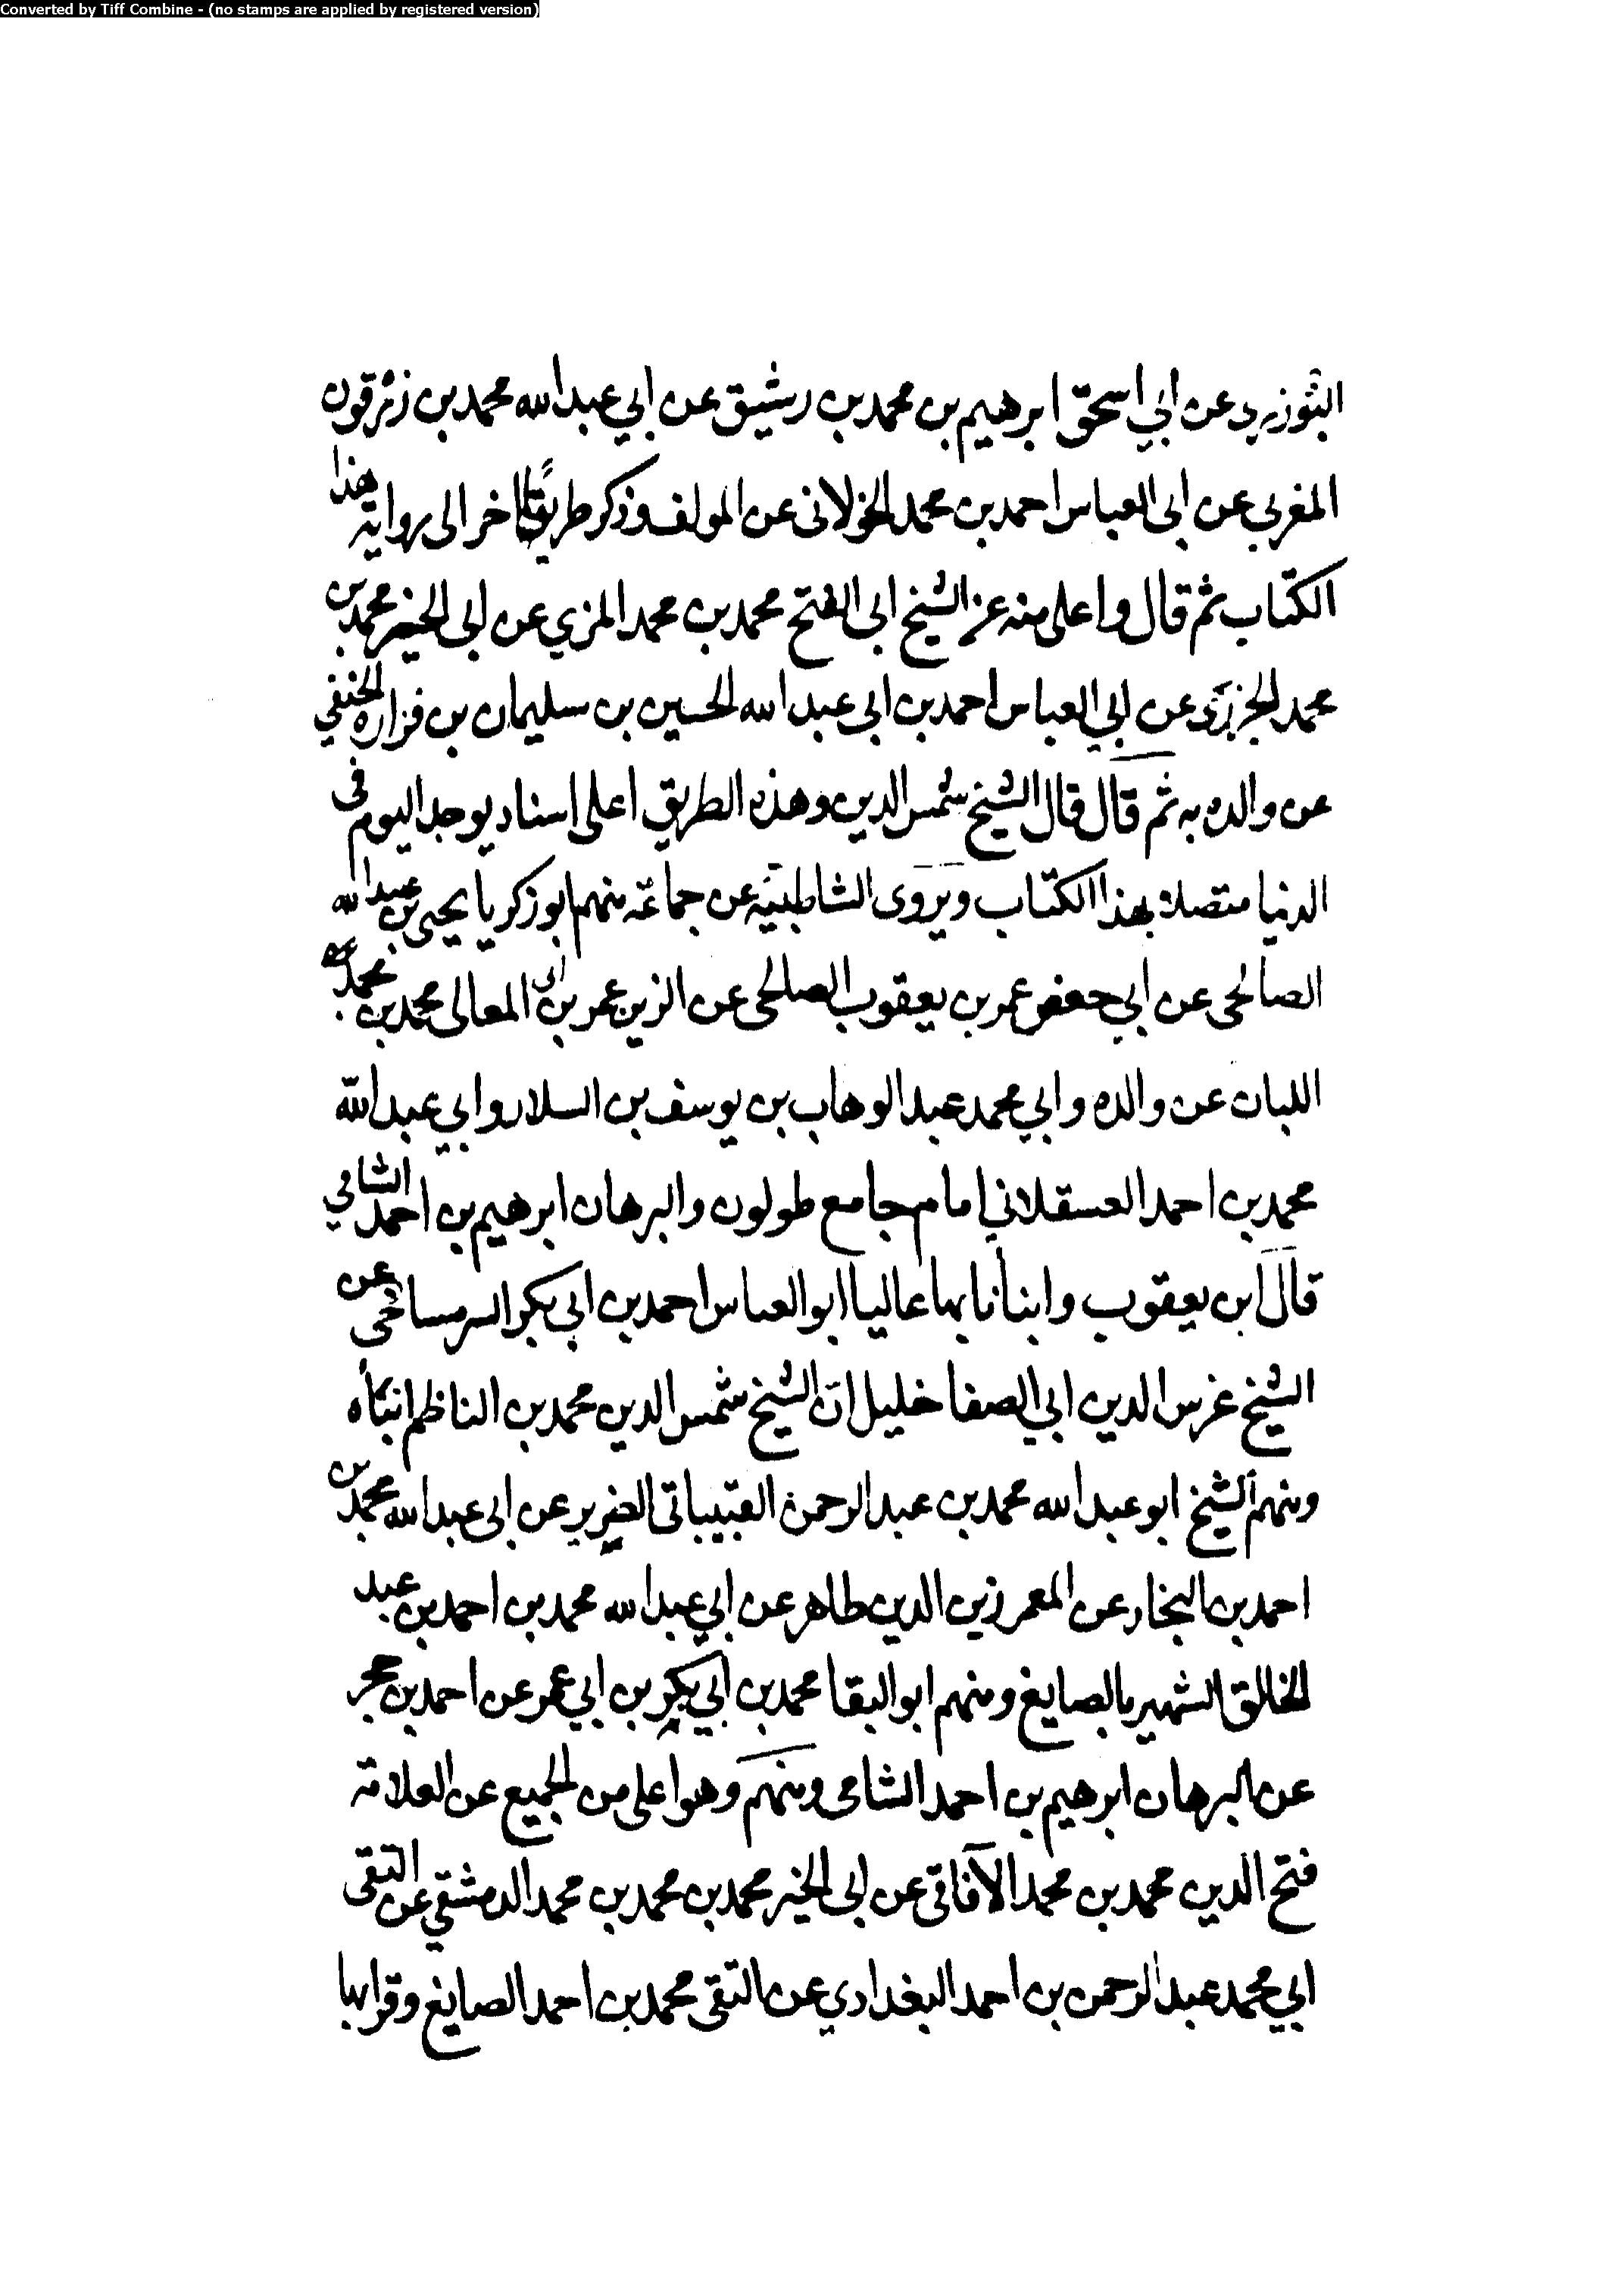 Converted by Tiff Combine - (no stamps are applied by registered version)
التوزري عن ابي اسحق ابرهيم بن محمد بن رشيق عن ابي عبد الله محمد بن زرقون
المغربي عن ابي العباس احمد بن محمد الخولاني عن المولف وذكر طريقًا اخر الى رواية هذا
الكتاب ثم قال واعلى منه عن الشيخ ابي الفتح محمد بن محمد المزي عن ابي الخير محمد بن
محمد الجزري عن ابي العباس احمد بن ابي عبد الله الحسين بن سليمان بن فزاره الحنفي
عن والده به ثم قال قال الشيخ شمس الدين وهذه الطريق اعلى اسناد يوجد اليوم في
الدنيا متصلا بهذا الكتاب ويروى الشاطبية عن جماعة منهم ابو زكريا يحيى بن عبد الله
الصالحى عن ابي جعفر عمر بن يعقوب الصلحى عن الزين عمر بن ابي المعالى محمد بن محمد
اللبان عن والده وابي محمد عبد الوهاب بن يوسف بن السلار وابي عبد الله
محمد بن احمد العسقلاني امام جامع طولون والبرهان ابرهيم بن احمد الشامي
قال ابن يعقوب وابنانا بها عاليا ابو العباس احمد بن ابي بكر عن
الشيخ غرس الدين ابي الصفا خليل ان الشيخ شمس الدين محمد بن الناظم انبأه
ومنهم الشيخ ابو عبد الله محمد بن عبد الرحمن القبيباتى الضرير عن ابي عبد الله محمد بن
احمد بن البخار عن المعمر زين الدين طاهر عن ابي عبد الله محمد بن احمد بن عبد
الخالق الشهير بالصايغ ومنهم ابو البقا محمد بن ابي بكر بن ابي عمر عن احمد بن حجر
عن البرهان ابرهيم بن احمد الشامى ومنهم وهو اعلى من الجميع عن العلامة
فتح الدين محمد بن محمد الآفاقي عن ابي الخير محمد بن محمد بن محمد الدمشقي عن التقى
ابي محمد عبد الرحمن بن احمد البغدادي عن التقى محمد بن احمد الصايغ وقرا بها